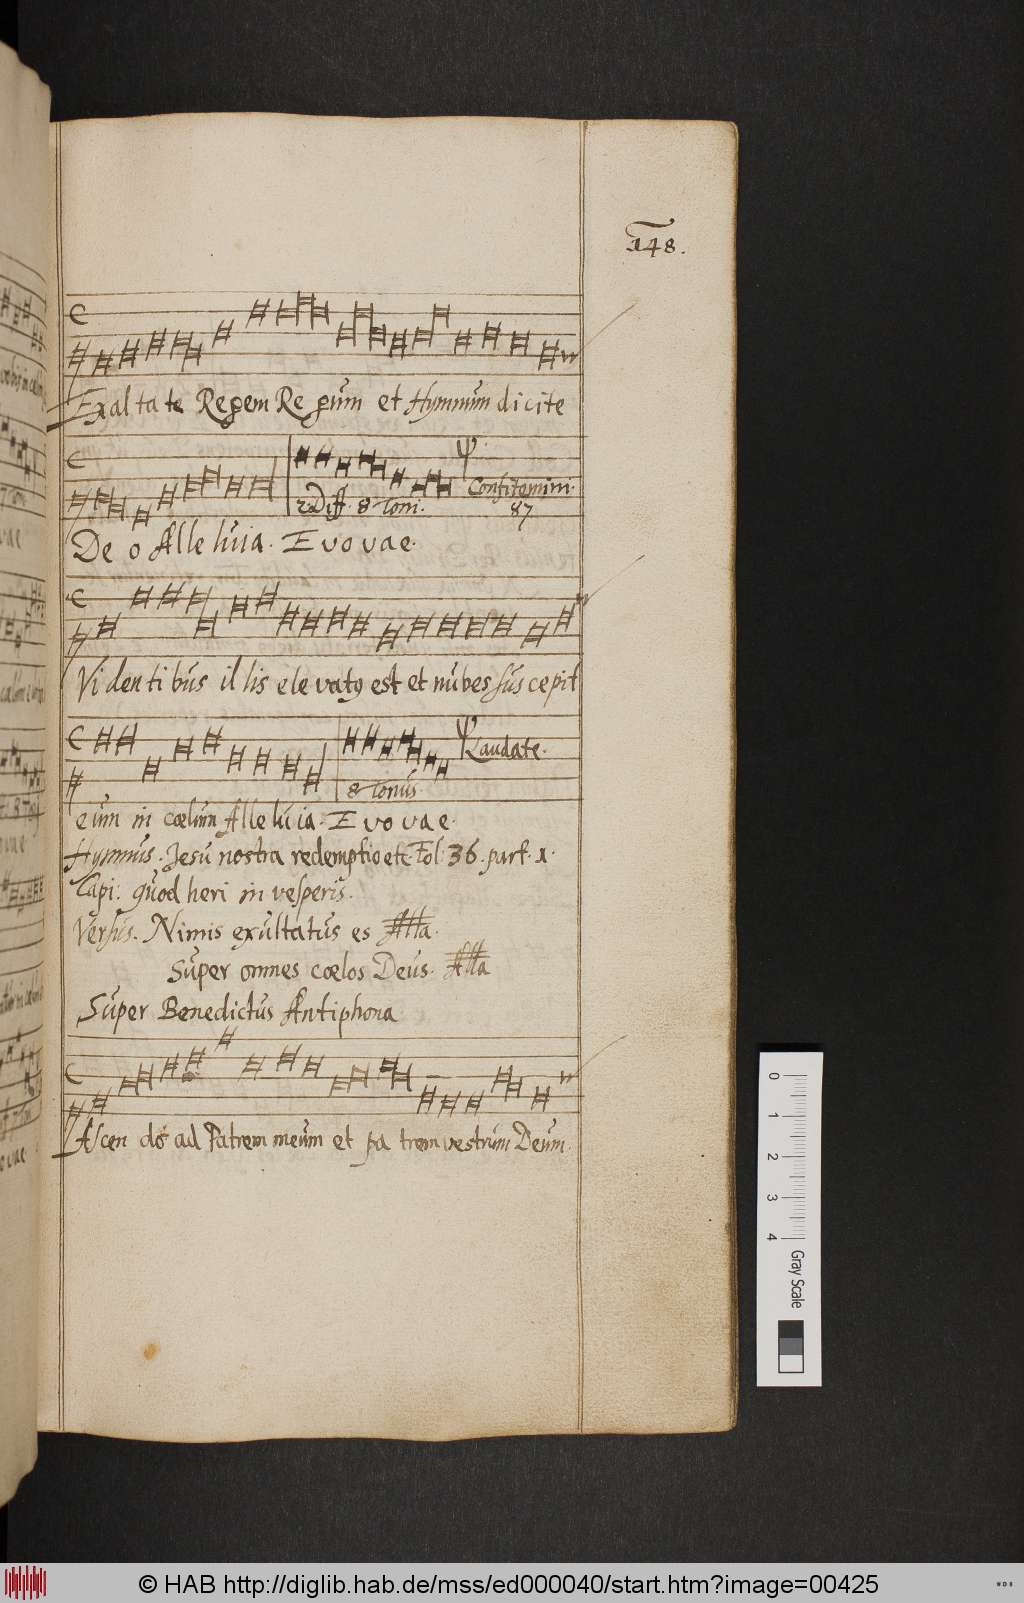 148.
Exal ta te Regem Re gum et Hymnum dicite
Confitemini.
2. Diff. 8 Toni.
87
De o Alle luia. E vo vae.
Vi den ti bus il lis ele vatꝯ est et nubes sus cepit
Laudate.
8 Tonus.
eum in cœlum Alle luia. E vo vae.
Hymnus. Jesu nostra redemptio etc. Fol: 36. part. 1.
Capi: quod heri in vesperis.
Versus. Nimis exultatus es Alla.
Super omnes cœlos Deus. Alla
Super Benedictus Antiphona
Ascen do ad Patrem meum et pa trem vestrum Deum.
0 1 2 3 4
Gray Scale
© HAB http://diglib.hab.de/mss/ed000040/start.htm?image=00425